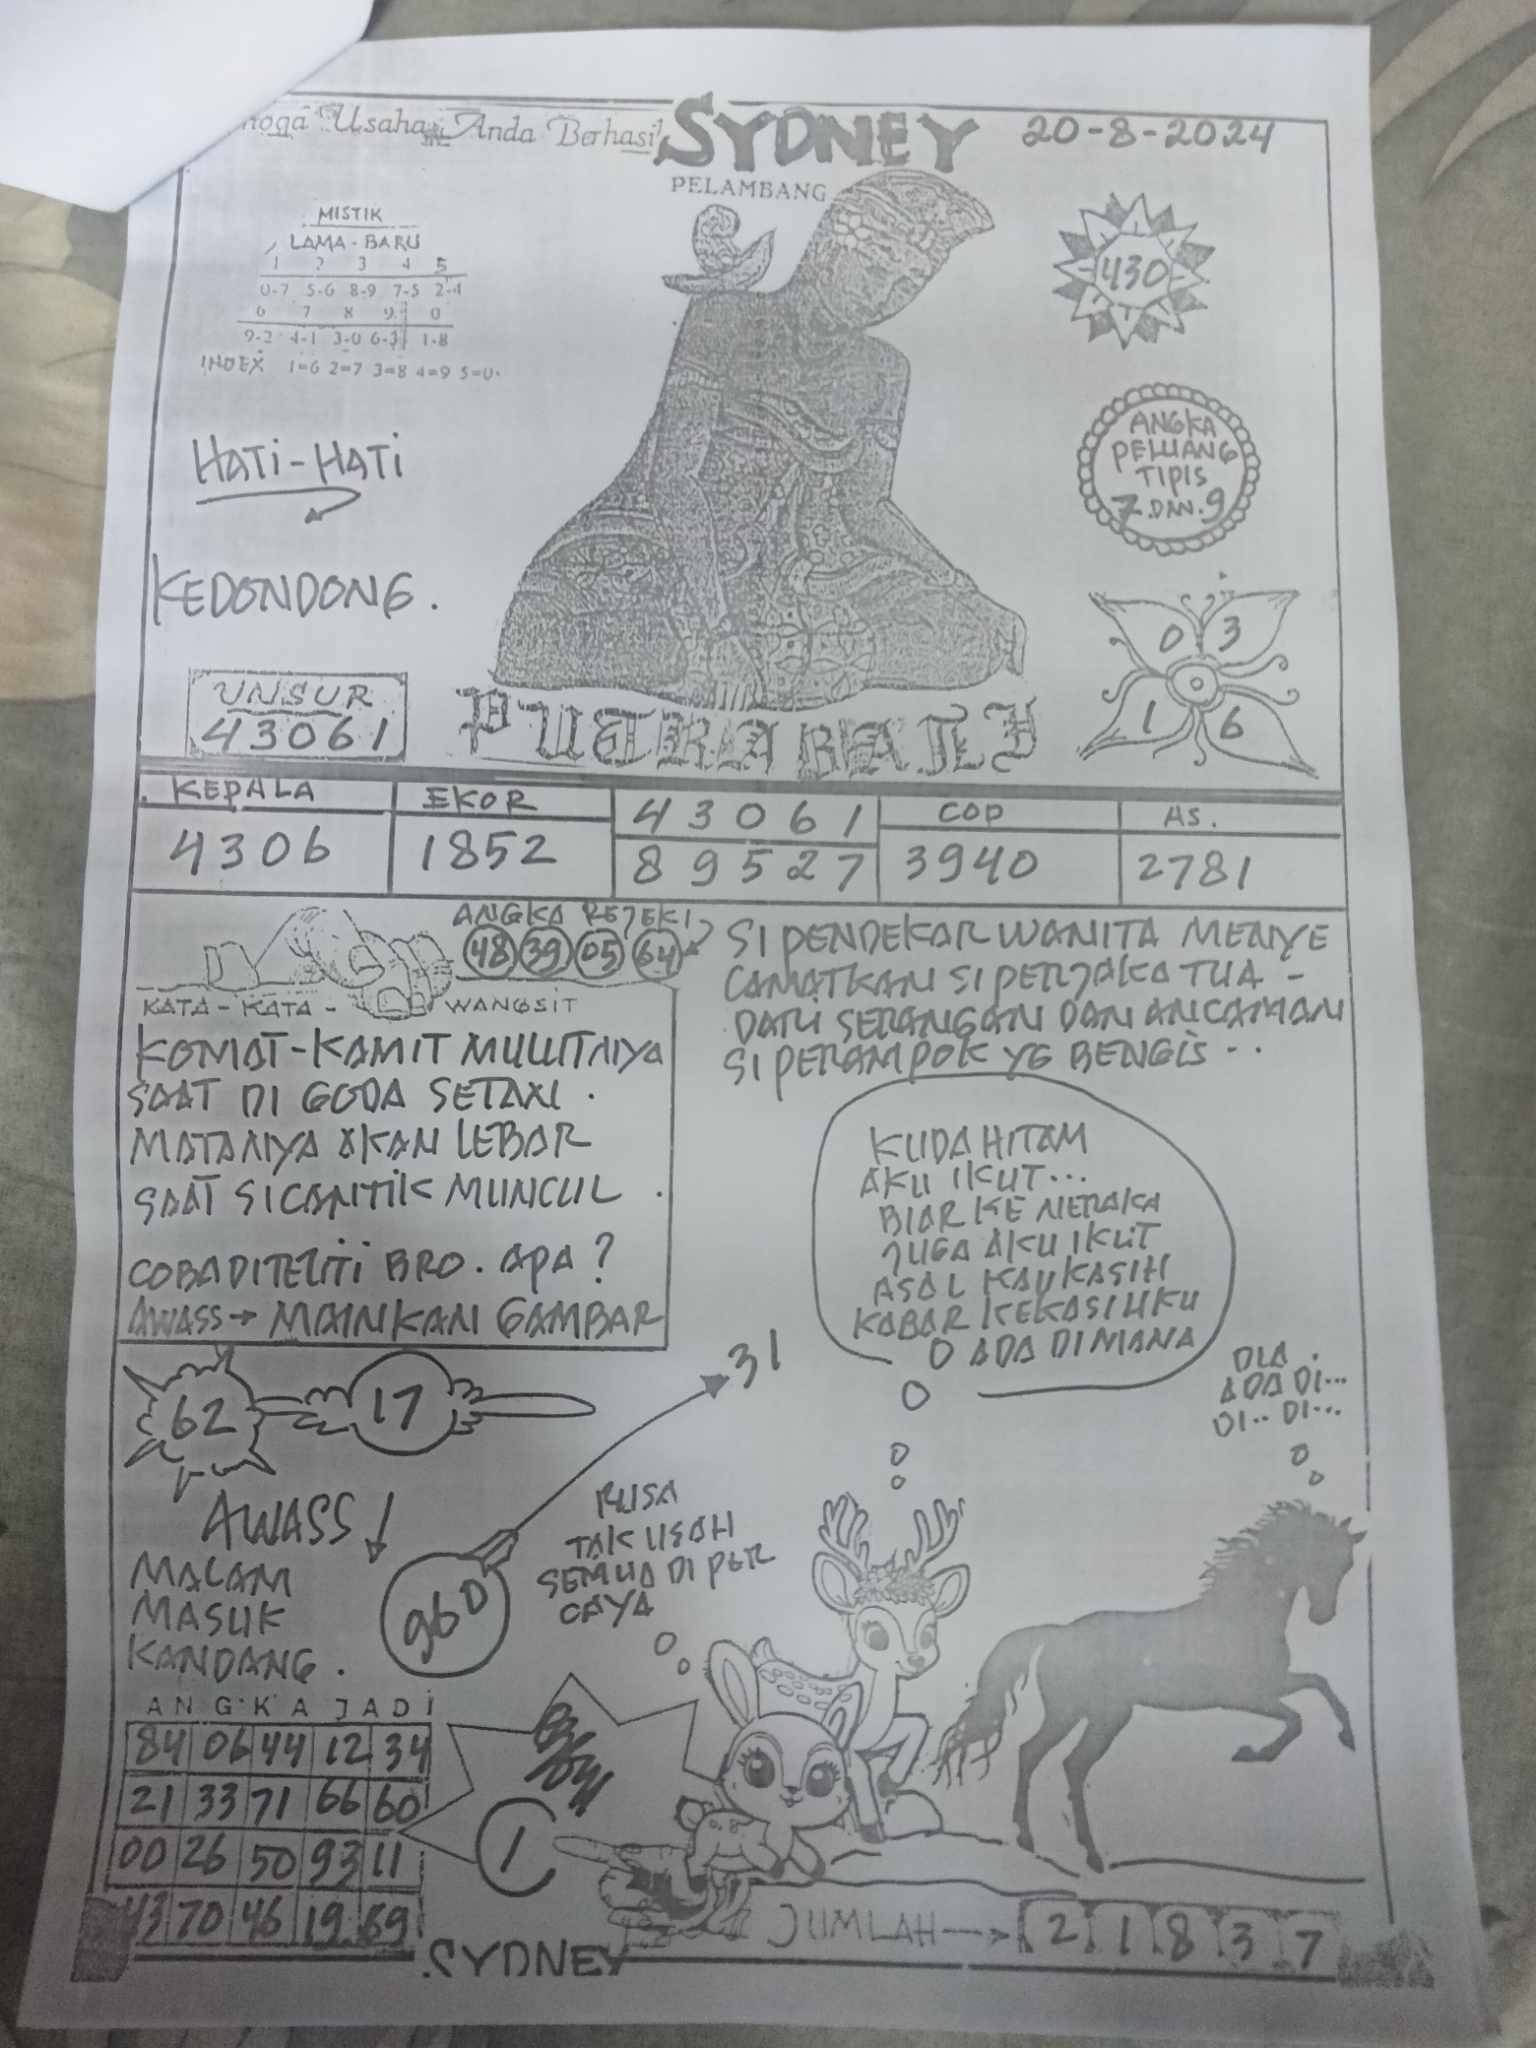 Usaha Anda Berhasil
SYDNEY
20-8-2024
PELAMBANG
MISTIK
LAMA - BARU
1 2 3 4 5
0-7 5-6 8-9 7-5 2-4
6 7 8 9 0
9-2 4-1 3-0 6-3 1-8
INDEX 1=6 2=7 3=8 4=9 5=0
430
HATI-HATI
ANGKA
PELUANG
TIPIS
7.DAN.9
KEDONDONG.
0 3
1 6
UNSUR
43061
PUTRA BALI
KEPALA
4306
EKOR
1852
43061
89527
COP
3940
AS.
2781
ANGKA REJEKI
48 39 05 64
KATA-KATA-WANGSIT
KOMAT-KAMIT MULUTNYA
SAAT DI GODA SETAN.
MATANYA AKAN LEBAR
SAAT SI CANTIK MUNCUL.
COBA DITELITI BRO. APA?
AWASS→ MAINKAN GAMBAR
SI PENDEKAR WANITA MENYE
LAMATKAN SI PERJAKA TUA -
DARI SERANGAN DAN ANCAMAN
SI PERAMPOK YG BENGIS..
KUDA HITAM
AKU IKUT...
BIAR KE NERAKA
JUGA AKU IKUT
ASAL KAU KASIH
KABAR KEKASIHKU
O ADA DIMANA
DIA.
ADA DI...
DI.. DI...
31
62 17
AWASS ↓
MALAM
MASUK
KANDANG.
96D
RUSA
TAK USAH
SEMUA DI PER
CAYA
ANGKA JADI
84 06 44 12 34
21 33 71 66 60
00 26 50 93 11
43 70 46 19 69
1
JUMLAH → 2 1 8 3 7
.SYDNEY